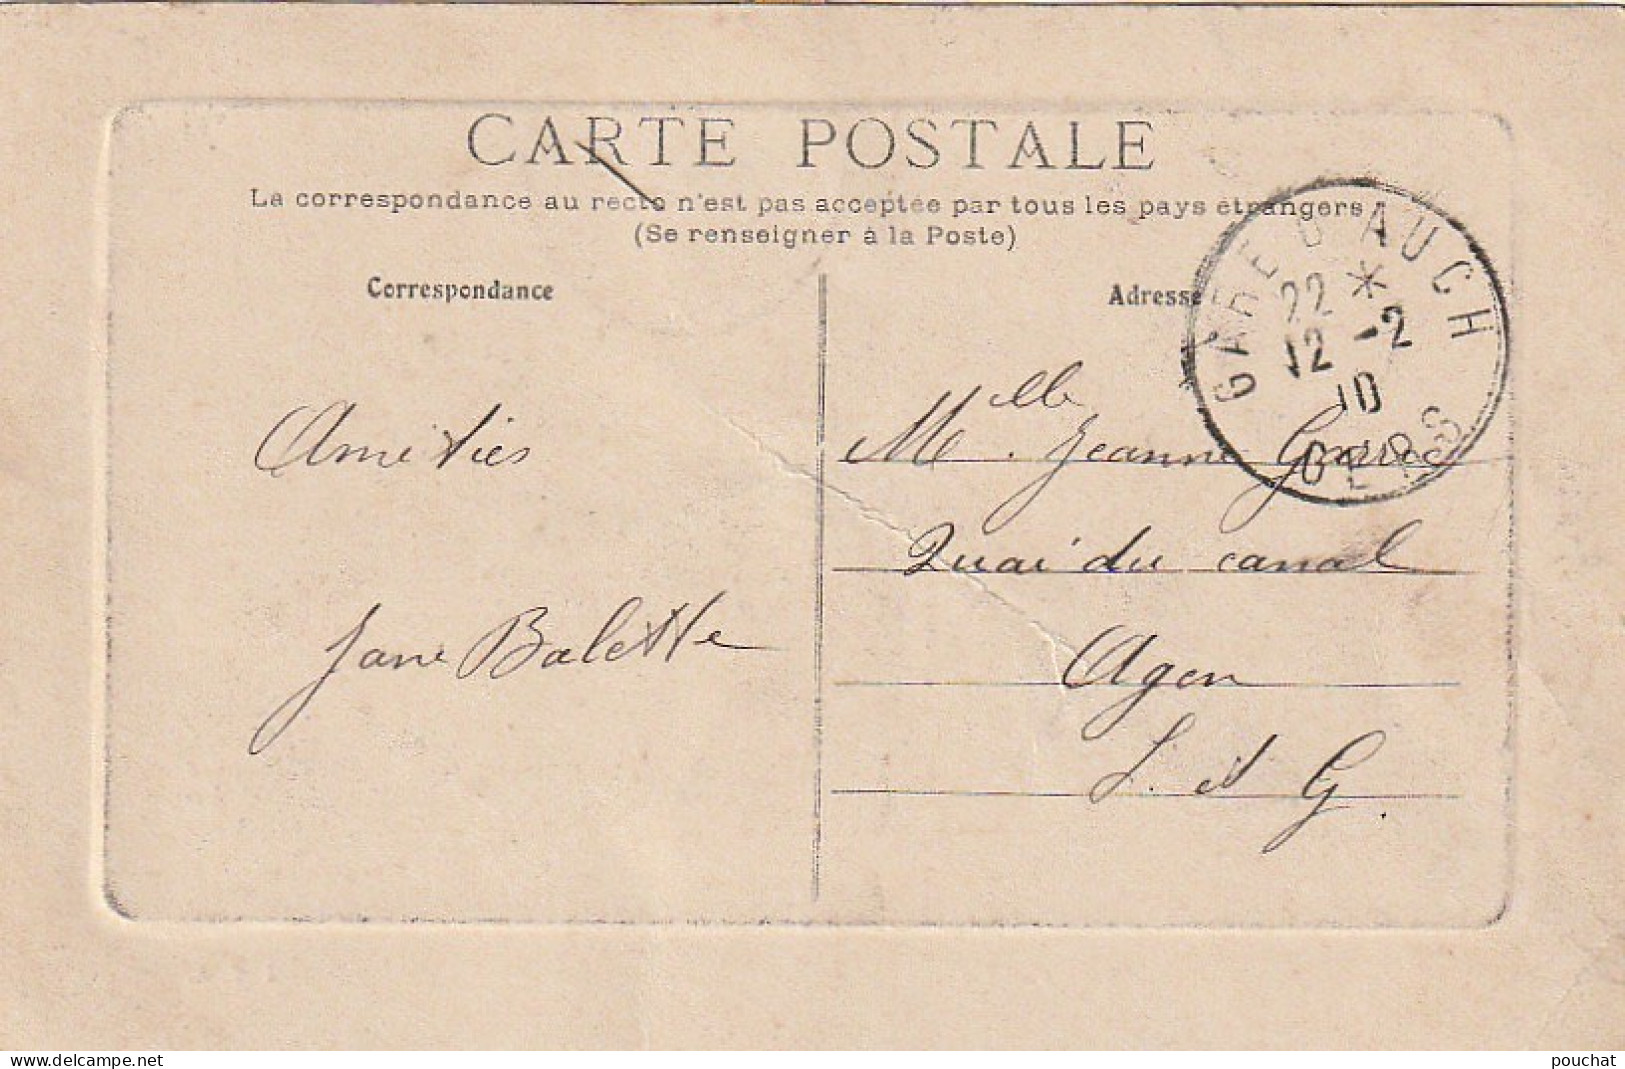 CARTE POSTALE
La correspondance au recto n'est pas acceptée par tous les pays étrangers
(Se renseigner à la Poste)
Correspondance
Adresse
GARE D'AUCH
22 *
12 -2
10
GERS
Amitiés
Jane Balette
Melle. Jeanne
Quai du canal
Agen
L. et G.
www.delcampe.net
pouchat